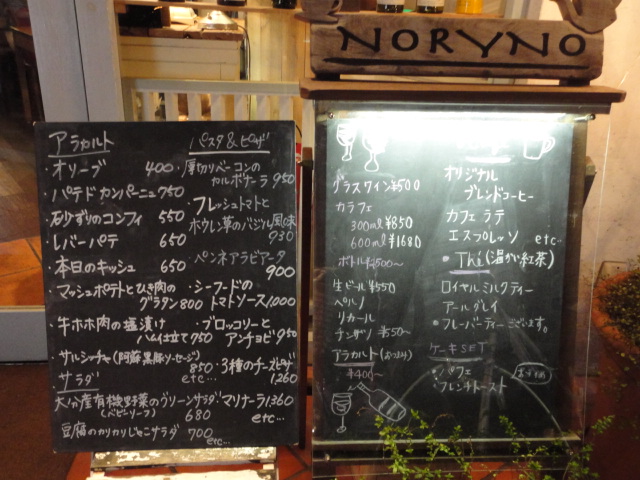 NORYNO
アラカルト
・オリーブ 400
・パテドカンパーニュ 750
・砂ずりのコンフィ 550
・レバーパテ 650
・本日のキッシュ 650
・マッシュポテトとひき肉の
グラタン 800
・牛ホホ肉の塩漬け
ハム仕立て 750
・サルシッチャ(阿蘇黒豚ソーセージ)
850
etc...
サラダ
大分産有機野菜のグリーンサラダ
(ベビーリーフ) 680
豆腐のカリカリじゃこサラダ 700
etc...
パスタ&ピザ
・厚切りベーコンの
カルボナーラ 950
・フレッシュトマトと
ホウレン草のバジル風味
930
・ペンネアラビアータ
900
・シーフードの
トマトソース 1000
・ブロッコリーと
アンチョビ 950
・3種のチーズピザ
1,260
マリナーラ 1360
etc...
グラスワイン ¥500
カラフェ
300ml ¥850
600ml ¥1680
ボトル ¥2500〜
生ビール ¥550
ペルノ
リカール
チンザノ ¥550〜
アラカルト(おつまみ)
¥400〜
オリジナル
ブレンドコーヒー
カフェラテ
エスプレッソ etc...
・Thé(温かい紅茶)
ロイヤルミルクティー
アールグレイ
・フレーバーティーございます。
ケーキSET
・パフェ
・フレンチトースト